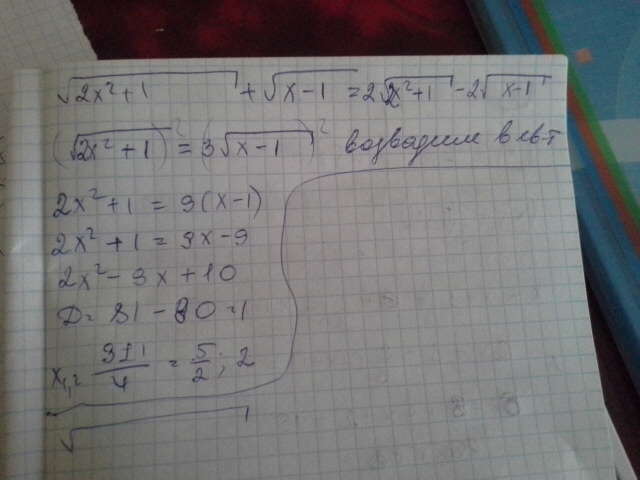 √2x²+1 + √x-1 = 2√x²+1 - 2√x-1
(√2x²+1)² = (3√x-1)² возводим в кв-т
2x²+1 = 9(x-1)
2x²+1 = 9x-9
2x²-9x+10
D= 81-80=1
x₁,₂= 9±1/4 = 5/2; 2